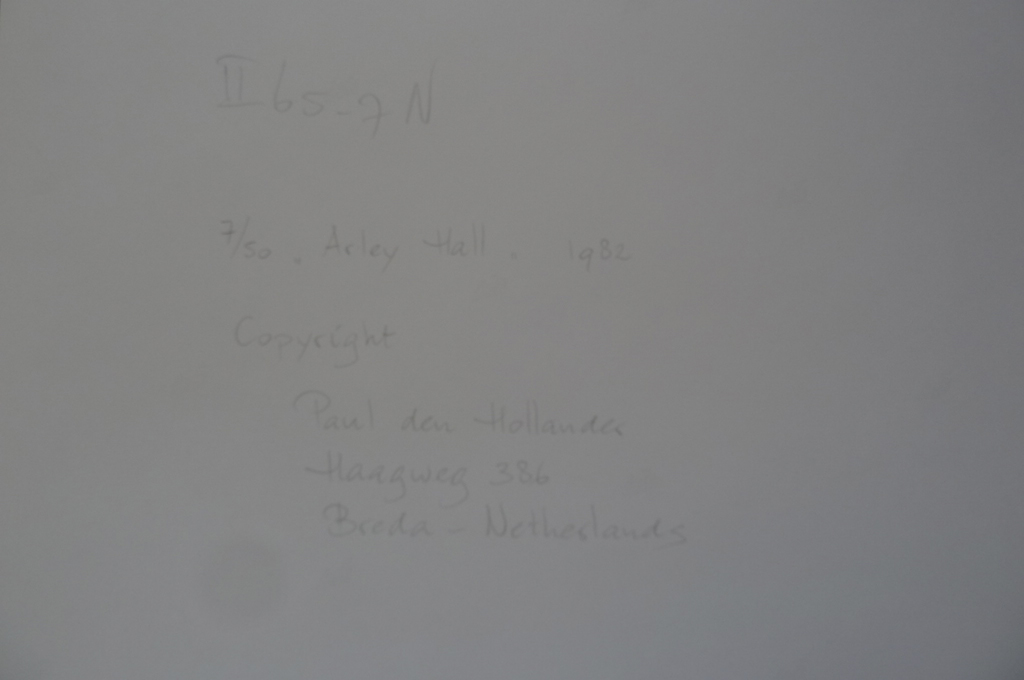 II 65-7 N
7/50 . Arley Hall . 1982
Copyright
Paul den Hollander
Haagweg 386
Breda - Netherlands